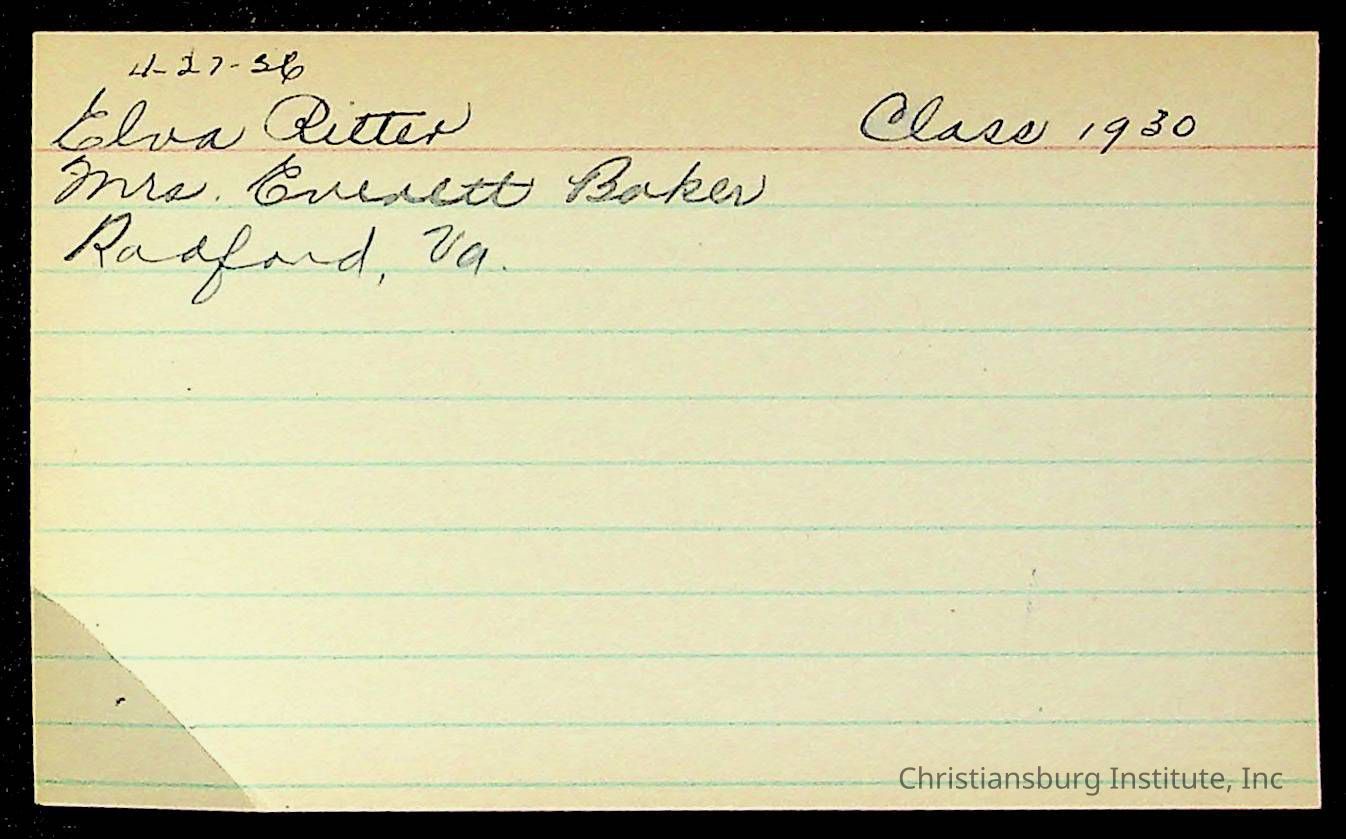 4-27-36
Elva Ritter Class 1930
Mrs. Everett Baker
Radford, Va.
Christiansburg Institute, Inc